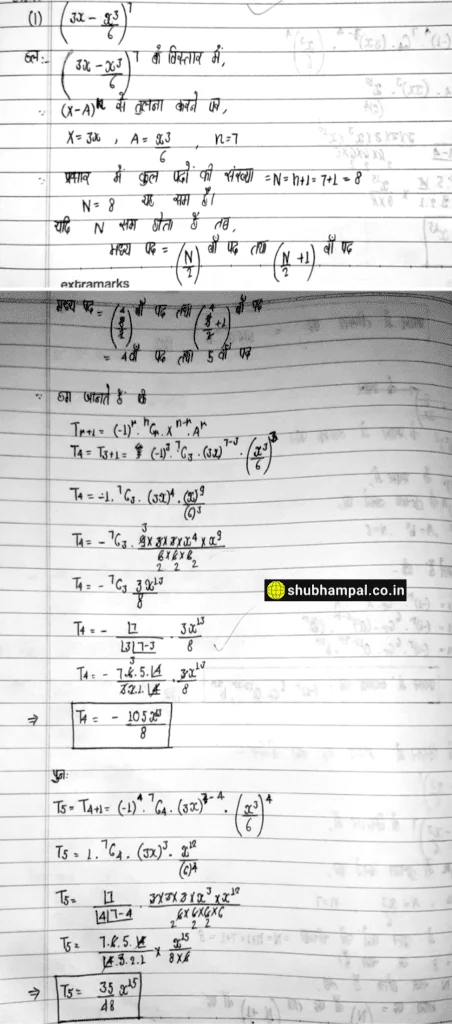 (1) (3x - x³/6)⁷
हल:- (3x - x³/6)⁷ के विस्तार में,
∵ (X-A)ⁿ से तुलना करने पर,
X = 3x , A = x³/6 , n=7
∵ प्रसार में कुल पदों की संख्या = N = n+1 = 7+1 = 8
∵ N = 8 यह सम है।
यदि N सम होता है तब,
मध्य पद = (N/2) वाँ पद तथा (N/2 + 1) वाँ पद
extramarks
मध्य पद = (8/2) वाँ पद तथा (8/2 + 1) वाँ पद
= 4वाँ पद तथा 5वाँ पद
∵ हम जानते हैं कि
Tr+1 = (-1)ʳ . ⁿCr . Xⁿ⁻ʳ . Aʳ
T4 = T3+1 = (-1)³ . ⁷C3 . (3x)⁷⁻³ . (x³/6)³
T4 = -1 . ⁷C3 . (3x)⁴ . (x)⁹/(6)³
T4 = - ⁷C3 . 3×3×3×3×x⁴×x⁹/6×6×6
T4 = - ⁷C3 3x¹³/8
shubhampal.co.in
T4 = - |7/|3|7-3 . 3x¹³/8
T4 = - 7.6.5.|4/3.2.1.|4 . 3x¹³/8
⇒ T4 = - 105x¹³/8
पुनः
T5 = T4+1 = (-1)⁴ . ⁷C4 . (3x)⁷⁻⁴ . (x³/6)⁴
T5 = 1 . ⁷C4 . (3x)³ . x¹²/(6)⁴
T5 = |7/|4|7-4 . 3×3×3×x³×x¹²/6×6×6×6
T5 = 7.6.5.|4/|4.3.2.1 × x¹⁵/8×6
⇒ T5 = 35 x¹⁵/48